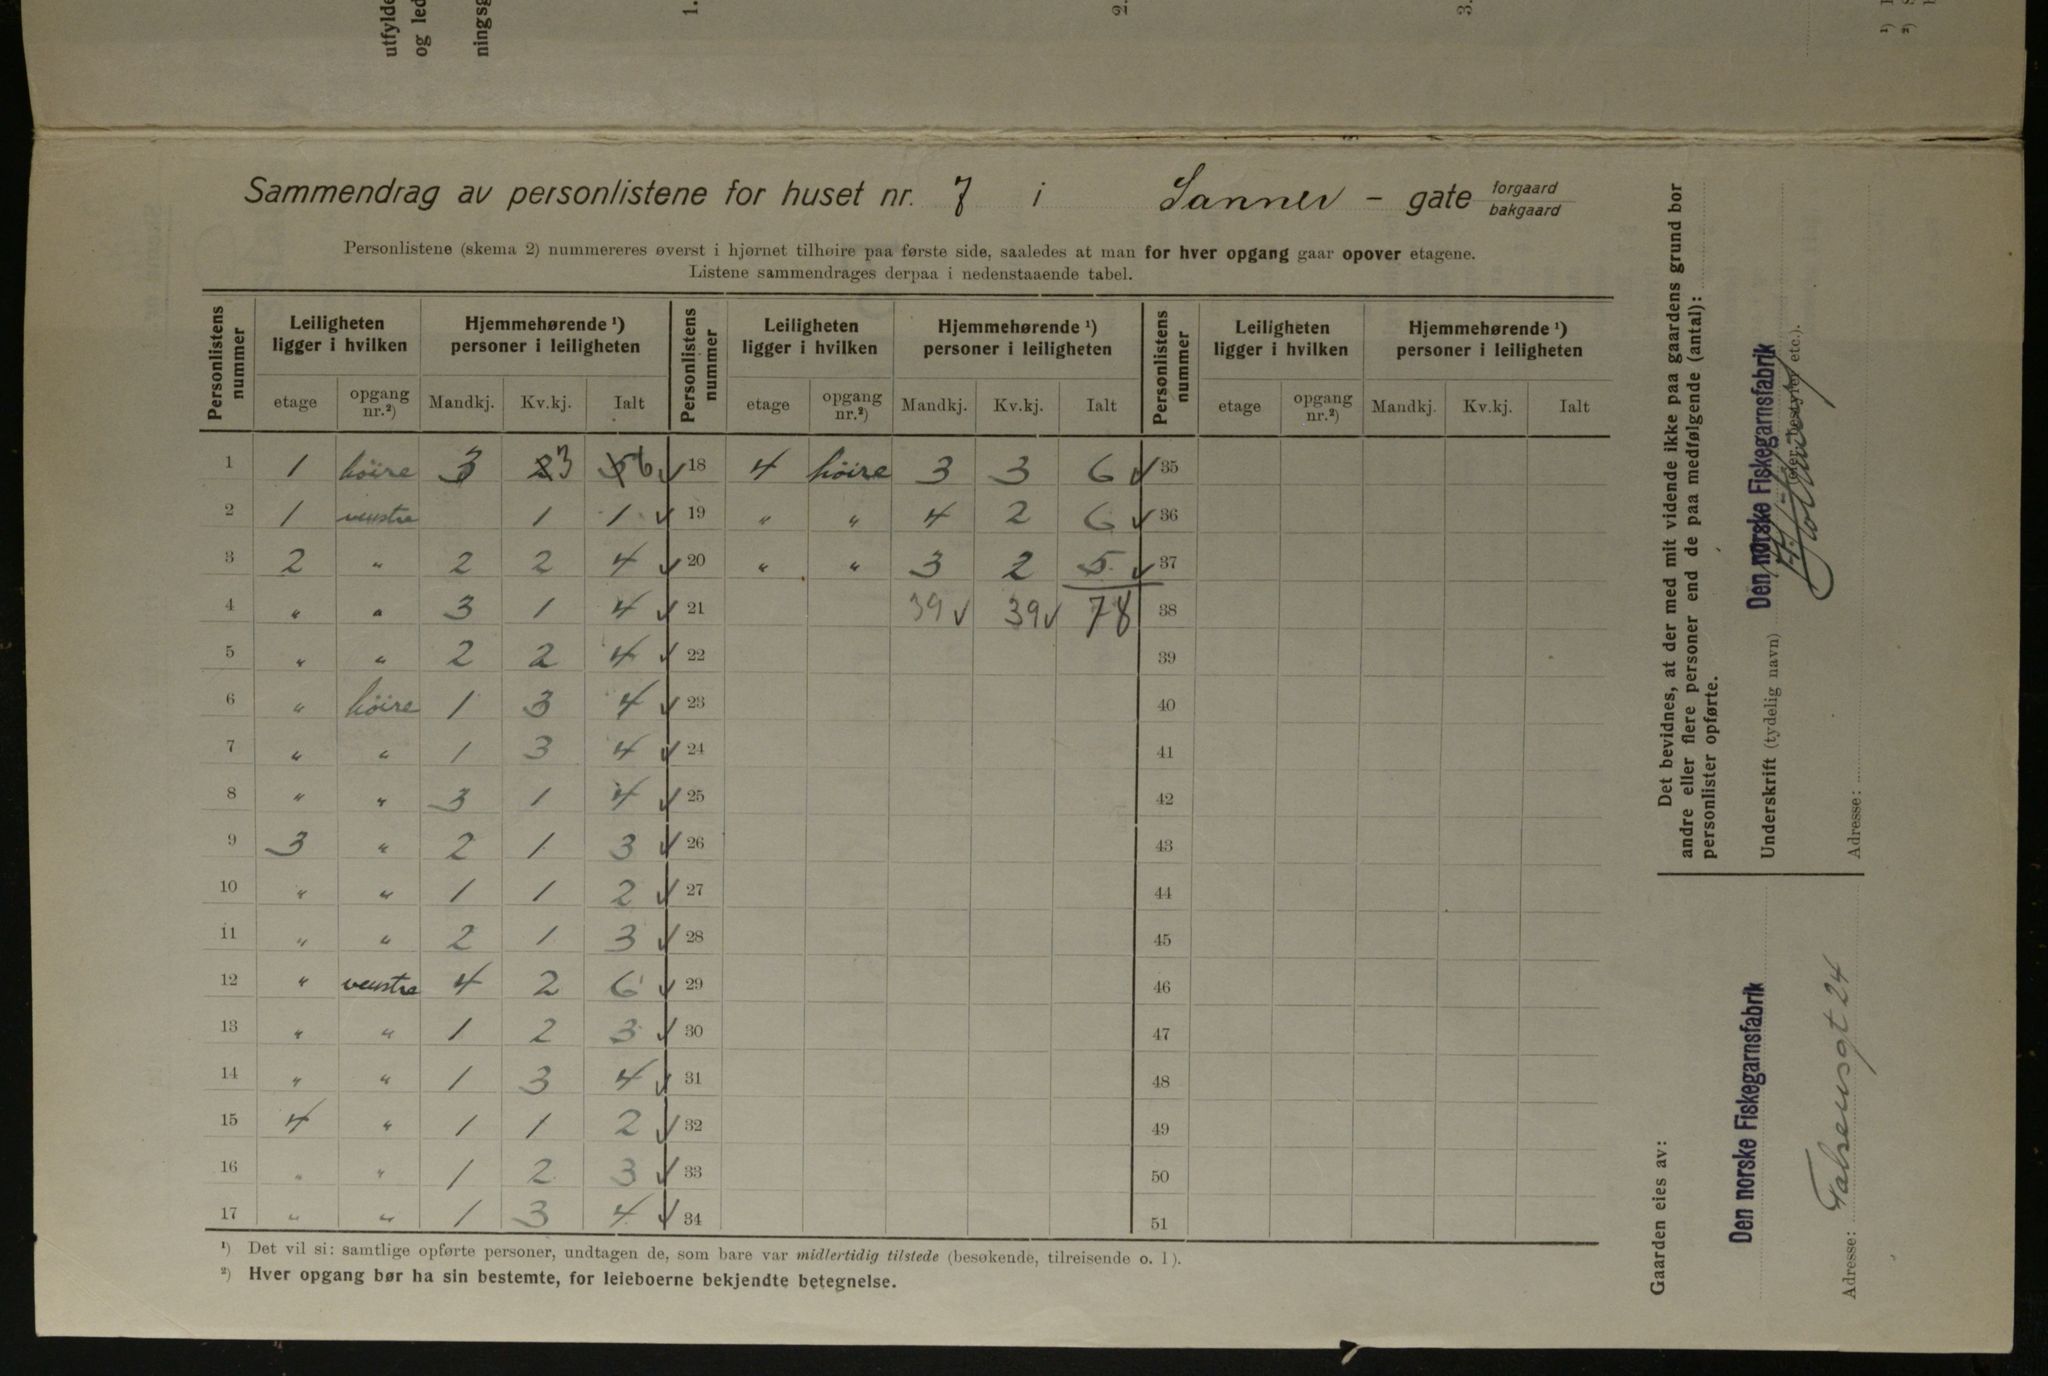 utfylde
og led
ningsg
1.
2.
3.
¹)
²)
Sammendrag av personlistene for huset nr. 7 i Sanner - gate forgaard bakgaard
Personlistene (skema 2) nummereres øverst i hjørnet tilhøire paa første side, saaledes at man for hver opgang gaar opover etagene.
Listene sammendrages derpaa i nedenstaaende tabel.
Personlistens nummer | Leiligheten ligger i hvilken | Hjemmehørende ¹) personer i leiligheten | Personlistens nummer | Leiligheten ligger i hvilken | Hjemmehørende ¹) personer i leiligheten | Personlistens nummer | Leiligheten ligger i hvilken | Hjemmehørende ¹) personer i leiligheten
etage | opgang nr.²) | Mandkj. | Kv.kj. | Ialt | etage | opgang nr.²) | Mandkj. | Kv.kj. | Ialt | etage | opgang nr.²) | Mandkj. | Kv.kj. | Ialt
1 | 1 | höire | 3 | 2 3 | 5 6 ✓ | 18 | 4 | höire | 3 | 3 | 6 ✓ | 35
2 | 1 | venstre | | 1 | 1 ✓ | 19 | " | " | 4 | 2 | 6 ✓ | 36
3 | 2 | " | 2 | 2 | 4 ✓ | 20 | " | " | 3 | 2 | 5 ✓ | 37
4 | " | " | 3 | 1 | 4 ✓ | 21 | | | 39 ✓ | 39 ✓ | 78 | 38
5 | " | " | 2 | 2 | 4 ✓ | 22 | 39
6 | " | höire | 1 | 3 | 4 ✓ | 23 | 40
7 | " | " | 1 | 3 | 4 ✓ | 24 | 41
8 | " | " | 3 | 1 | 4 ✓ | 25 | 42
9 | 3 | " | 2 | 1 | 3 ✓ | 26 | 43
10 | " | " | 1 | 1 | 2 ✓ | 27 | 44
11 | " | " | 2 | 1 | 3 ✓ | 28 | 45
12 | " | venstre | 4 | 2 | 6 ✓ | 29 | 46
13 | " | " | 1 | 2 | 3 ✓ | 30 | 47
14 | " | " | 1 | 3 | 4 ✓ | 31 | 48
15 | 4 | " | 1 | 1 | 2 ✓ | 32 | 49
16 | " | " | 1 | 2 | 3 ✓ | 33 | 50
17 | " | " | 1 | 3 | 4 ✓ | 34 | 51
¹) Det vil si: samtlige opførte personer, undtagen de, som bare var midlertidig tilstede (besøkende, tilreisende o. l).
²) Hver opgang bør ha sin bestemte, for leieboerne bekjendte betegnelse.
Det bevidnes, at der med mit vidende ikke paa gaardens grund bor
andre eller flere personer end de paa medfølgende (antal):
personlister opførte.
Den norske Fiskegarnsfabrik
Underskrift (tydelig navn)
(eier, bestyrer etc.).
Adresse:
Gaarden eies av:
Den norske Fiskegarnsfabrik
Adresse: Falsensgt 24